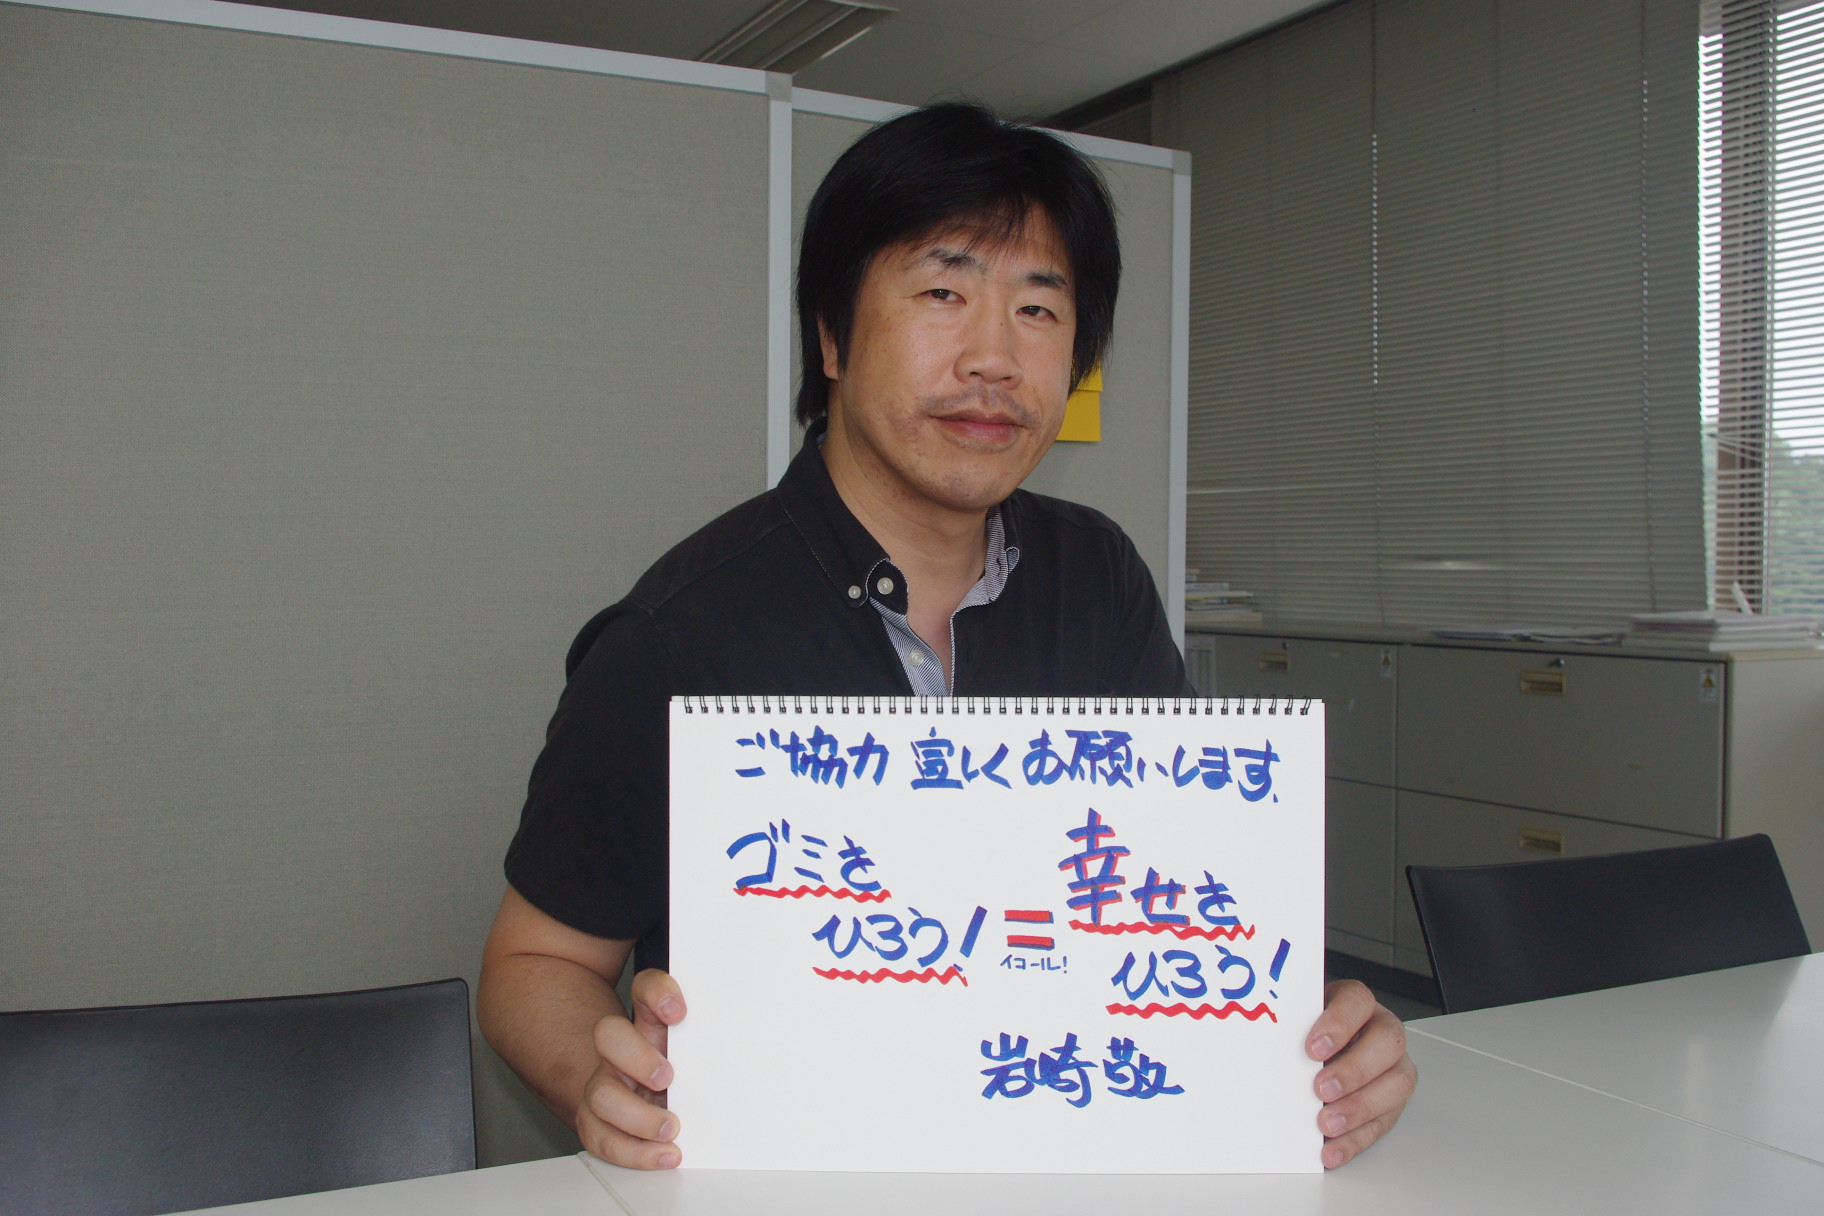 ご協力 宜しくお願いします.
ゴミを
ひろう!
=
イコール!
幸せを
ひろう!
岩崎 敬